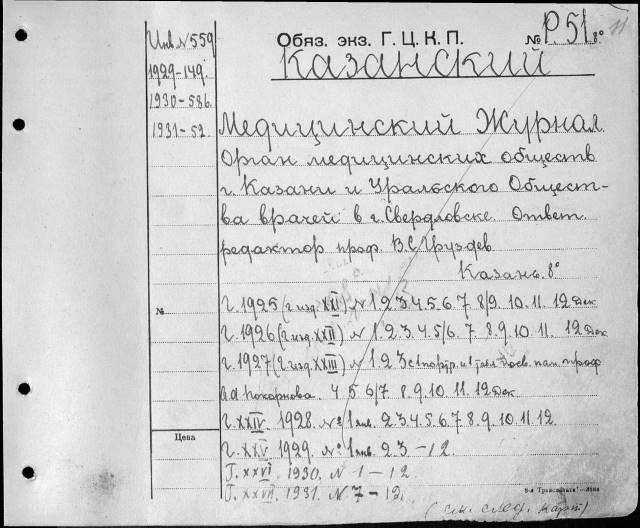 Инв. № 559
1929-149.
1930-586.
1931-52.
Обяз. экз. Г. Ц. К. П. № Р. 51 8°
11
Казанский
Медицинский Журнал.
Орган медицинских обществ
г. Казани и Уральского Общест-
ва врачей в г. Свердловске. Ответ.
редактор проф. В.С. Груздев
Казань. 8°
№
Г. 1925 (г. изд. XXI) № 1. 2. 3. 4. 5. 6. 7. 8/9. 10. 11. 12 Дек
Г. 1926 (г. изд. XXII) № 1. 2. 3. 4. 5/6. 7. 8. 9. 10. 11. 12 Дек
Г. 1927 (г. изд. XXIII) № 1. 2. 3 с 1 портр. и 1 табл. посв. пам. проф
4 5 6/7 8. 9. 10. 11. 12 Дек.
Г. XXIV. 1928. № 1 янв. 2. 3. 4. 5. 6. 7. 8. 9. 10. 11. 12.
Цена
Г. XXV. 1929. № 1 янв. 2. 3 - 12.
Г. XXVI. 1930. № 1 - 12.
Г. XXVII. 1931. № 7 - 12.
(см. след. карт.)